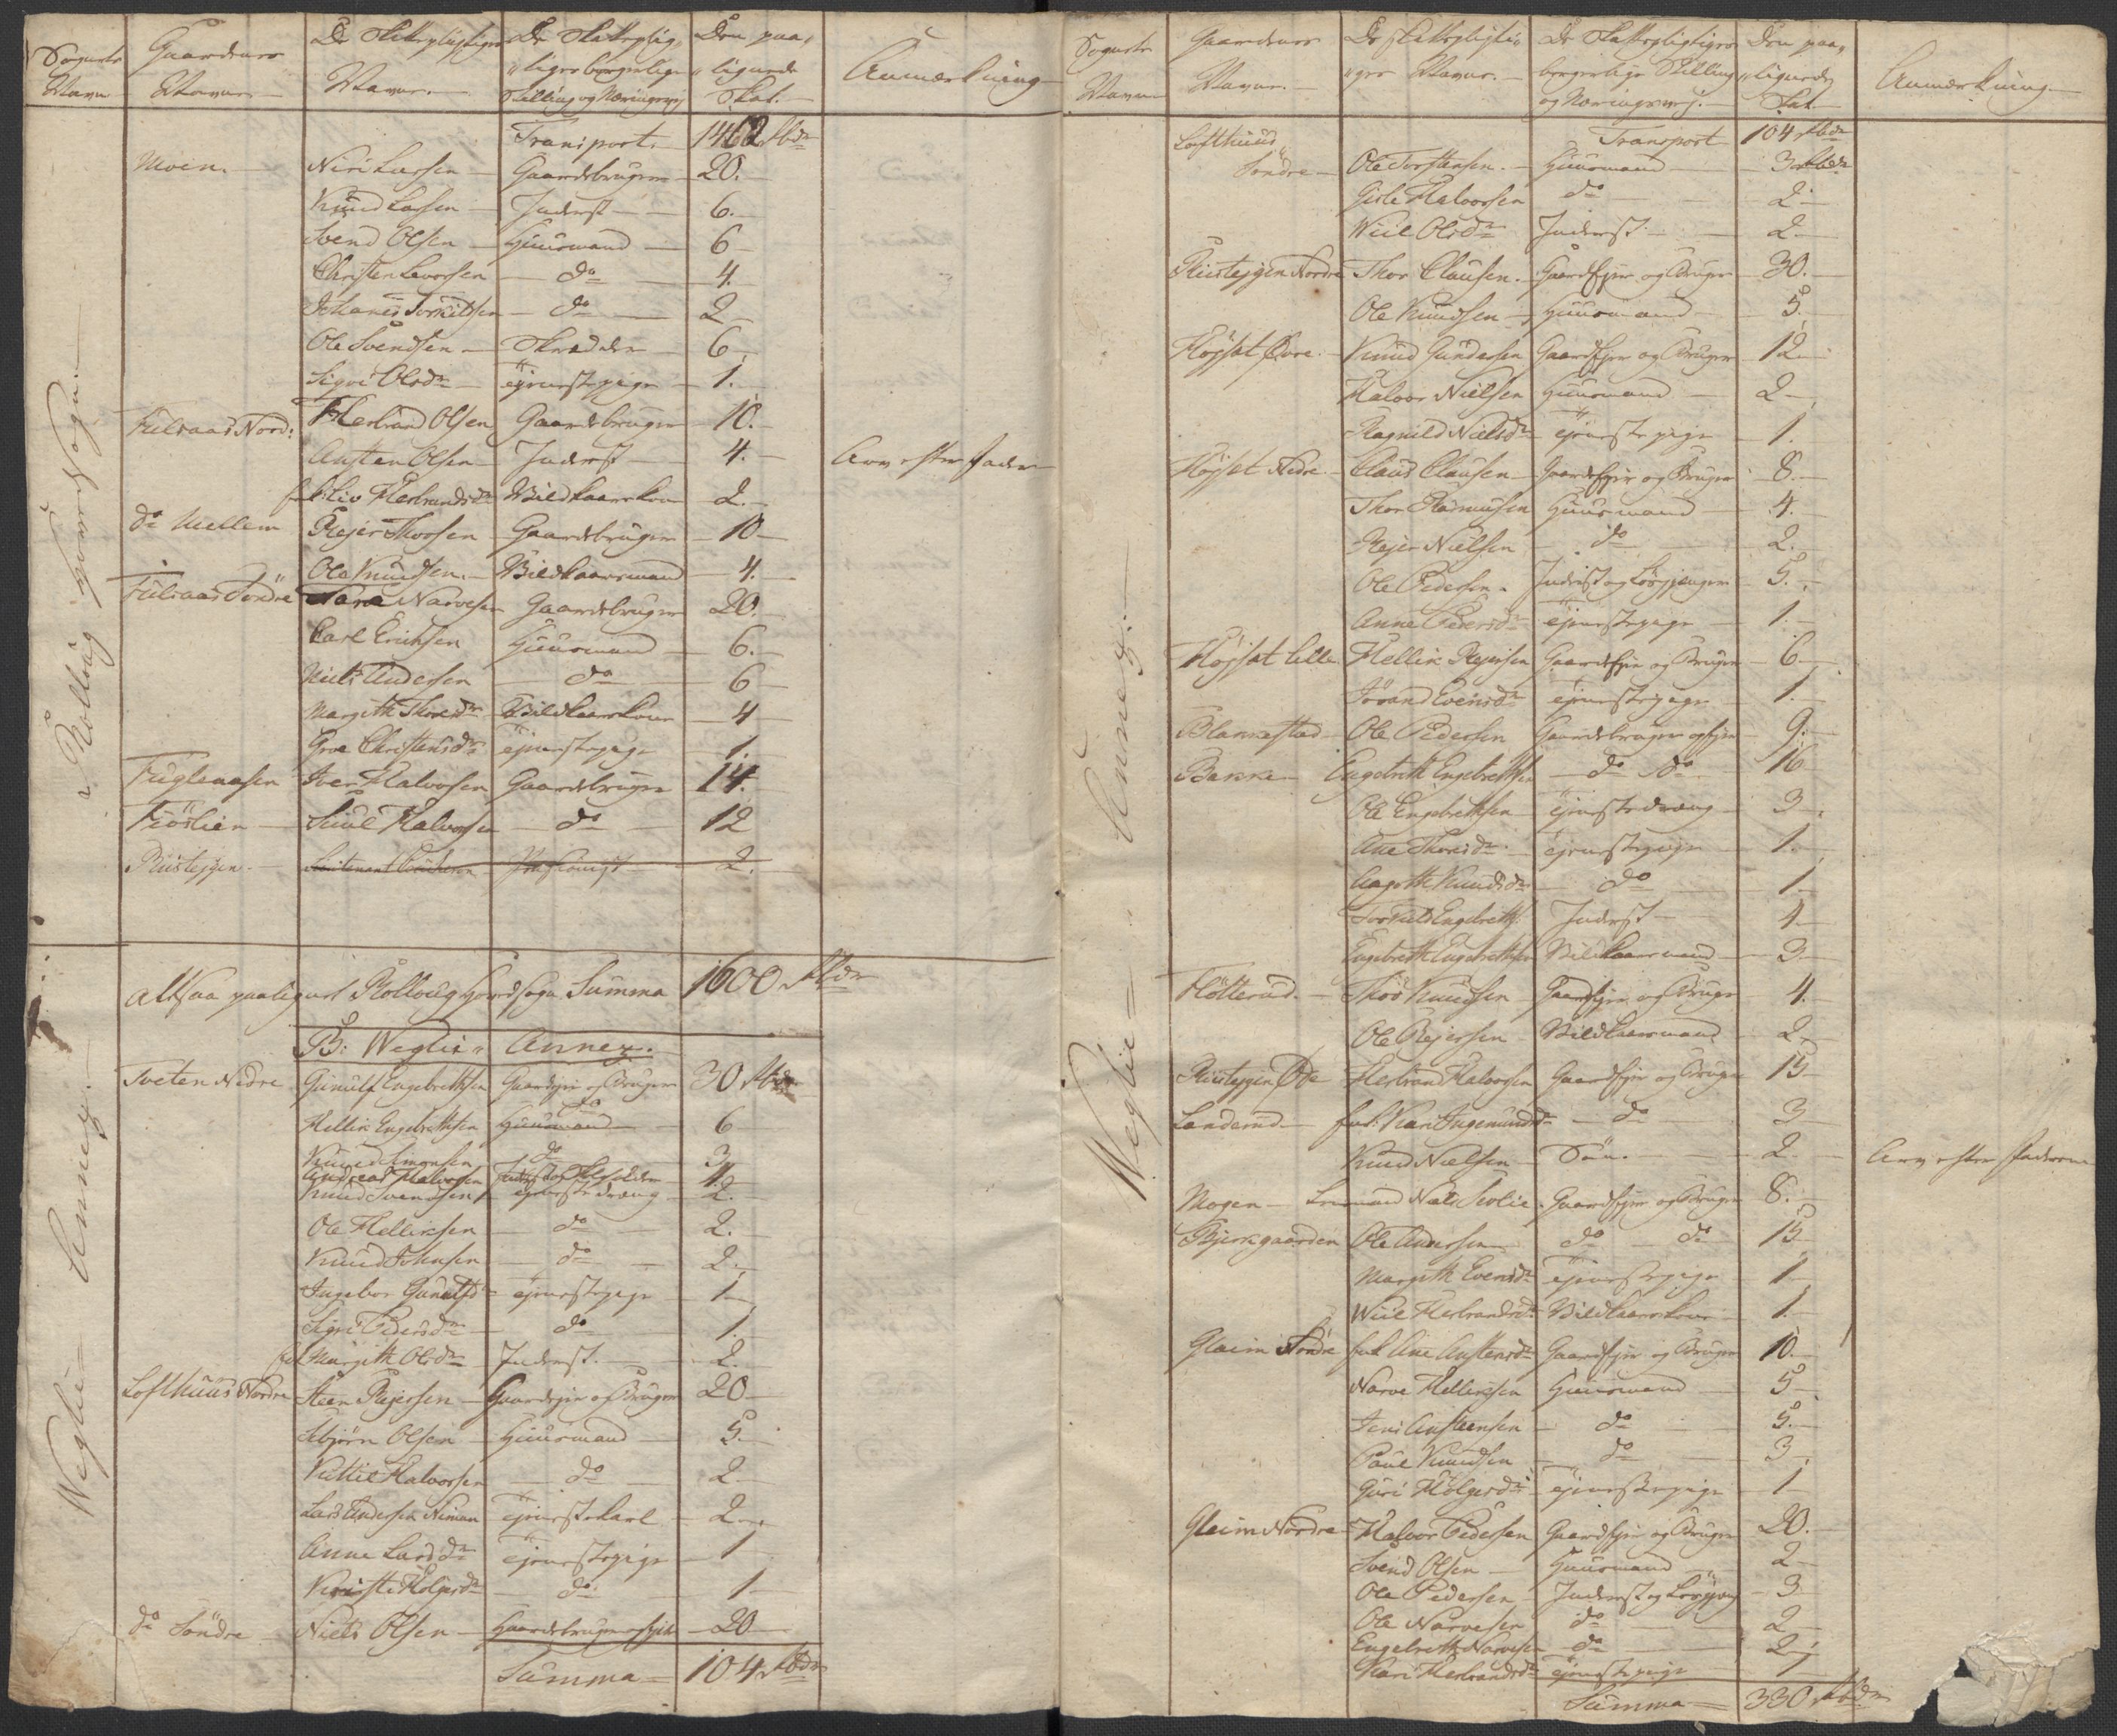 Sognets Navn | Gaardenes Navne. | De Skattepligtiges Navne. | De Skattepligtiges borgerlige Stilling og Næringsvej | Den paalignede Skat. | Anmærkning
Rollaug Hoved Sogn.
Transport. 1462 Rbdr
Moen. Niri Larsen Gaardebruger 20.
Knud Larsen Inderst 6.
Svend Olsen Huusmand 6
Christen Levorsen do 4.
Johanes Torkildsen do 2
Ole Svendsen Skrædder 6
Sigri Olsdr Tjenestepige 1.
Fulsaas Nord: Herbrand Olsen Gaardebruger 10.
Austen Olsen Inderst 4. Arv efter Fader
Liv Herbrandsdr Vildkaarskone 2.
do Mellem Rejer Thorsen Gaardebruger 10
Ole Knudsen Vildkaarsmand 4.
Fulsaas Søndre Narve Narvesen Gaardebruger 20.
Carl Erichsen Huusmand 6.
Niels Andersen do 6
Margith Thoresdr Vildkaarskone 4
Groe Christensdr Tjenestepige 1.
Fuglenesen Iver Halvorsen Gaardebruger 14.
Fiøslien Juul Halvorsen do 12
Rustejgen. Lieutenant 2.
altsaa paalignet Rollaug Hovedsogn Summa 1600 Rbdr
B: Weglie Annex.
Weglie Annex.
Tveten Nedre Gunulf Engebrethsen Gaardejer og Bruger 30 Rbdr
Hellik Engebrethsen Huusmand do 6
Knud Simensen do 3
Andreas Halvorsen Inderst 4.
Knud Svendsen Tjenestedreng 2.
Ole Helliksen do 2.
Knud Johnsen do 2.
Ingebor Gunulfsdr Tjenestepige 1
Sigri Pedersdr do 1.
Margith Olsdr Inderst. 2.
Lofthuus Nordre Steen Rejersen Gaardejer og Bruger 20
Asbjørn Olsen Huusmand 5.
Kittil Halvorsen do 2
Lars Andersen Tjenestekarl 2
Anne Larsdr Tjenestepige 1
Kirsti Holgersdr do 1
do Søndre Niels Olsen Gaardebruger 20
Summa 104 Rbdr
Sognets Navn | Gaardenes Navne. | De Skattepligtiges Navne. | De Skattepligtiges borgerlige Stilling og Næringsvej. | Den paalignede Skat. | Anmærkning.
Weglie Annex.
Transport 104 Rbdr
Lofthuus Søndre Ole Torstensen. Huusmand 3 Rbdr
Gisle Halvorsen do 2
Wiil Olsdr Inderst 2
Rustejgen Nordre Thor Clausen. Gaardejer og Bruger 30.
Ole Knudsen Huusmand 5.
Højset Øvre. Knud Gundersen Gaardejer og Bruger 12
Halvor Nielsen Huusmand 2
Ragnild Nielsdr Tjenestepige 1.
Højset Nedre. Claus Clausen Gaardejer og Bruger 8.
Thor Rasmusen Huusmand 4.
Rejer Nielsen do 2.
Ole Pedersen. Inderst og Løsgjænger 5.
Anne Pedersdr Tjenestepige 1.
Højset lille Hellik Rejersen Gaardejer og Bruger 6
Jørand Evensdr Tjenestepige 1.
Blakkestad Ole Pedersen Gaardebruger og Ejer 9.
Bakke Engebreth Engebrethsen do do 16
Ole Engebrethsen Tjenestedreng 3
Ane Thoresdr Tjenestepige 1.
Aagoth Knudsdr do 1.
Torkild Engebreths. Inderst 4
Engebreth Engebrethsen Vildkaarsmand 3
Fløtterud. Thor Knudsen Gaardejer og Bruger 4.
Ole Rejersen Vildkaarsmand 2
Rustejgen Øde Herbrand Halvorsen Gaardejer og Bruger 15
Landerud. Enk: Kari Ingemundsdr do 3
Knud Nielsen Søn. 2. Arv efter Faderen
Mogen Niels Gaardejer og Bruger 8.
Bjerkgaarden Ole Andersen do do 15
Margith Evensdr Tjenestepige 1
Wiil Herbrandsdr Vildkaarskone 1.
Glaim Søndre Enk Ane Austensdr Gaardejer og Bruger 10.
Narve Helliksen Huusmand 5
Jens Austensen do 5.
Poul Knudsen do 3
Guri Holgersdr Tjenestepige 1
Glaim Nordre Halvor Pedersen Gaardejer og Bruger 20.
Svend Olsen Huusmand 2
Ole Pedersen Inderst og Løsgjeng 3
Ole Narvesen do 2
Engebreth Narvesen do 2
Kari Herbrandsdr Tjenestepige 1
Summa 330 Rbdr